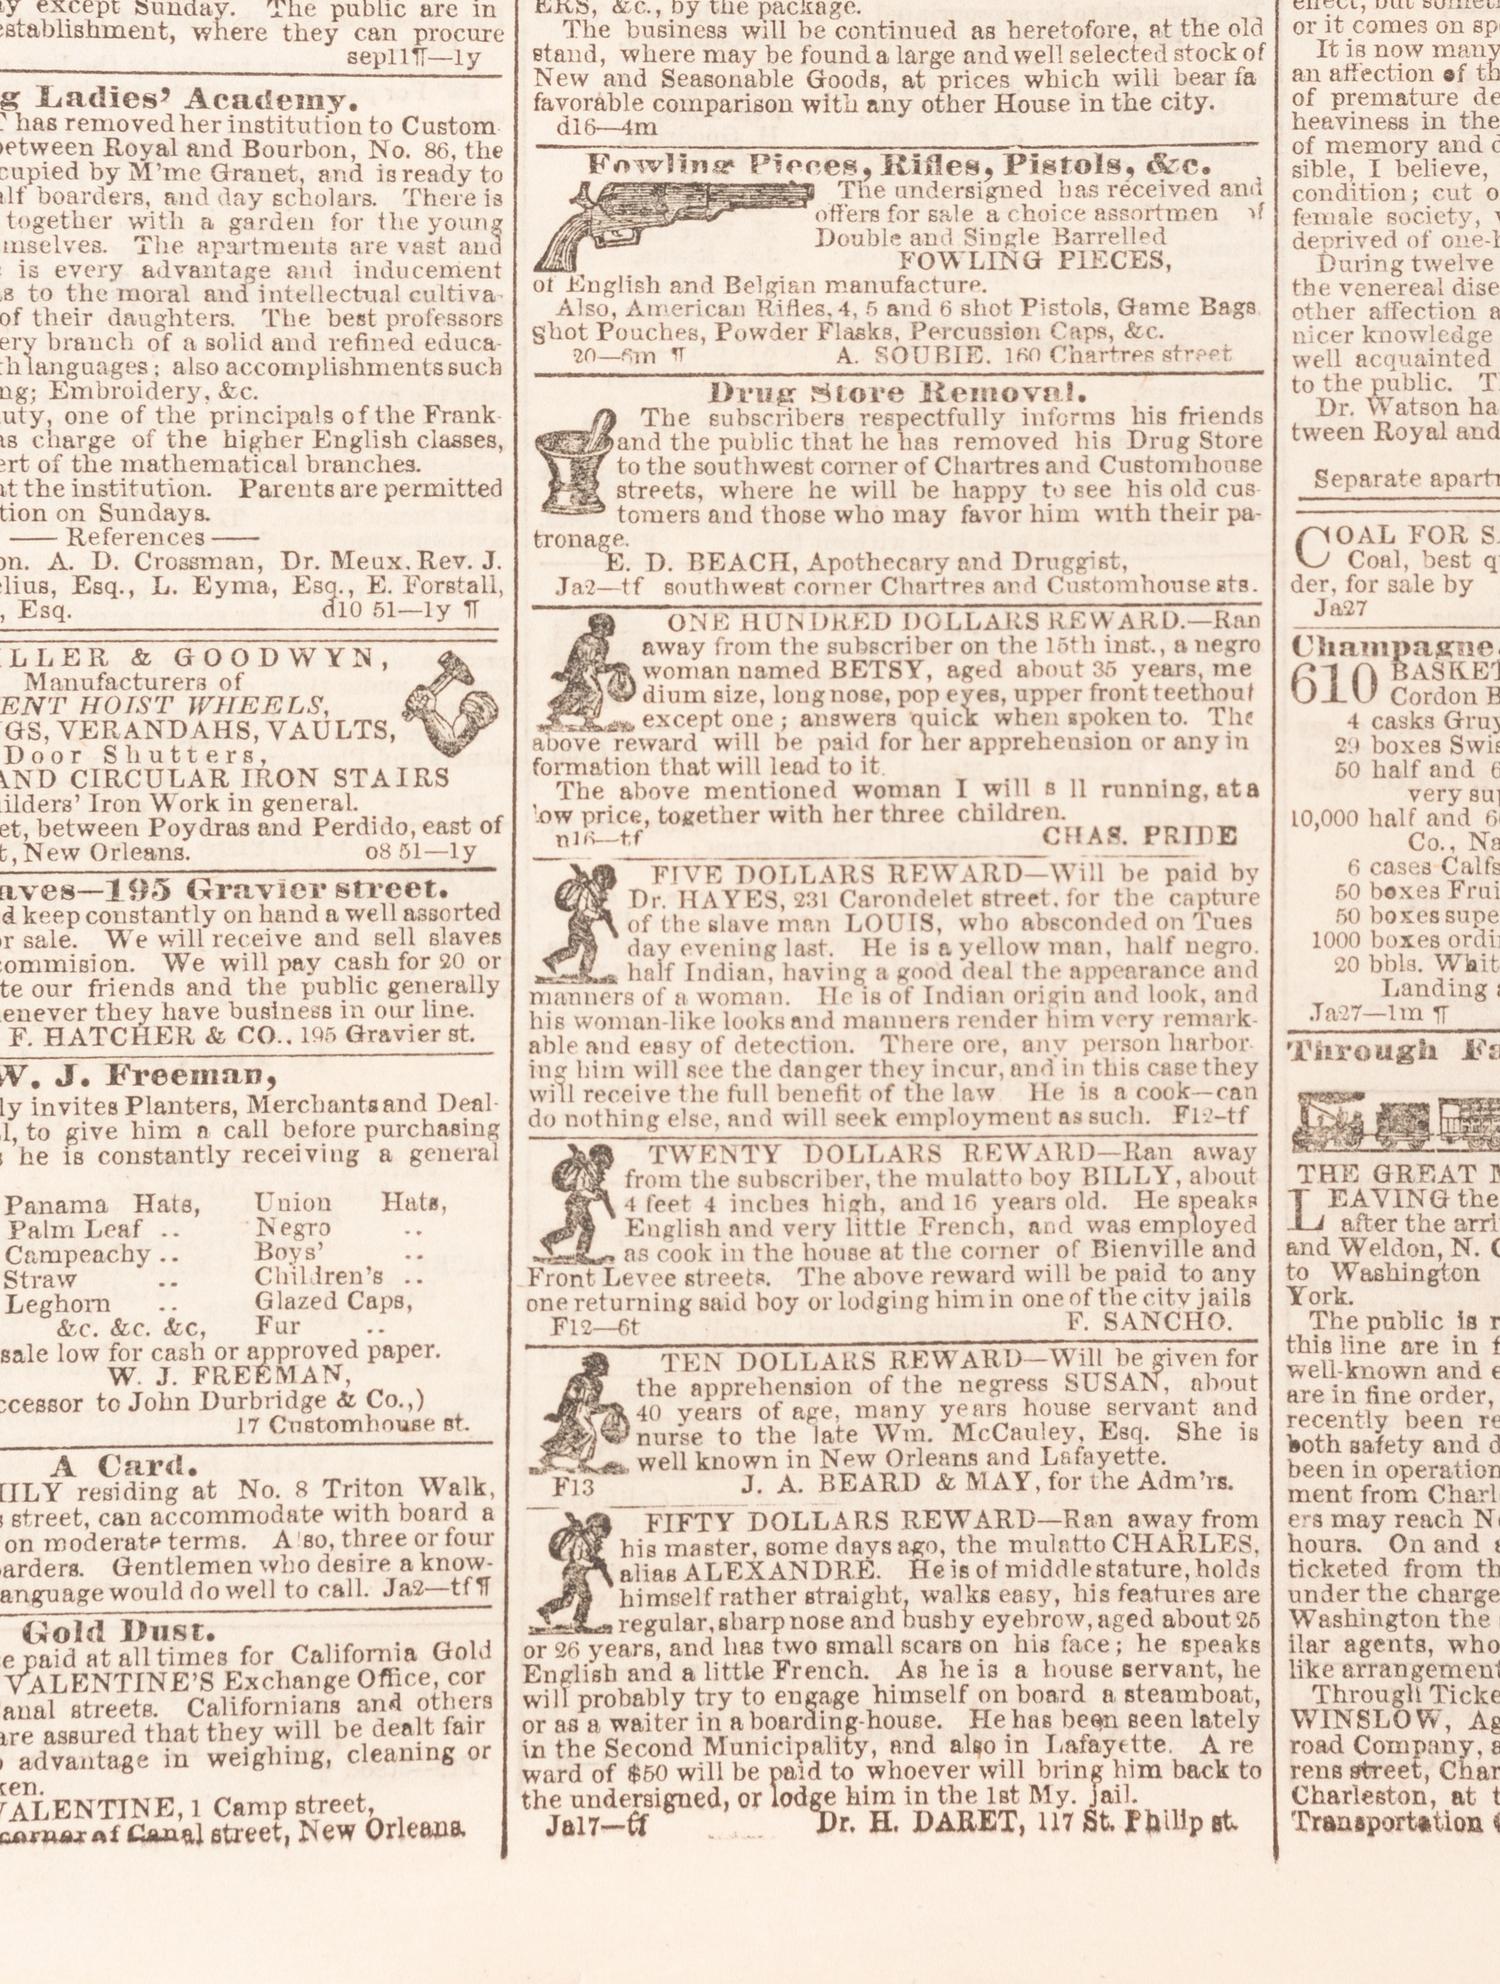 ay except Sunday. The public are in
establishment, where they can procure
sep11¶—1y
g Ladies' Academy.
T has removed her institution to Custom
between Royal and Bourbon, No. 86, the
cupied by M'me Granet, and is ready to
alf boarders, and day scholars. There is
together with a garden for the young
mselves. The apartments are vast and
is every advantage and inducement
as to the moral and intellectual cultiva-
of their daughters. The best professors
ery branch of a solid and refined educa-
th languages; also accomplishments such
ng; Embroidery, &c.
uty, one of the principals of the Frank-
as charge of the higher English classes,
ert of the mathematical branches.
at the institution. Parents are permitted
tion on Sundays.
—— References ——
on. A. D. Crossman, Dr. Meux. Rev. J.
elius, Esq., L. Eyma, Esq., E. Forstall,
, Esq. d10 51—1y ¶
ILLER & GOODWYN,
Manufacturers of
ENT HOIST WHEELS,
GS, VERANDAHS, VAULTS,
Door Shutters,
AND CIRCULAR IRON STAIRS
uilders' Iron Work in general.
et, between Poydras and Perdido, east of
t, New Orleans. o8 51—1y
aves—195 Gravier street.
d keep constantly on hand a well assorted
or sale. We will receive and sell slaves
commision. We will pay cash for 20 or
te our friends and the public generally
enever they have business in our line.
F. HATCHER & CO., 195 Gravier st.
W. J. Freeman,
ly invites Planters, Merchants and Deal-
l, to give him a call before purchasing
s he is constantly receiving a general
Panama Hats, Union Hats,
Palm Leaf .. Negro ..
Campeachy .. Boys' ..
Straw .. Children's ..
Leghorn .. Glazed Caps,
&c. &c. &c, Fur ..
sale low for cash or approved paper.
W. J. FREEMAN,
ccessor to John Durbridge & Co.,)
17 Customhouse st.
A Card.
MILY residing at No. 8 Triton Walk,
s street, can accommodate with board a
on moderate terms. A so, three or four
oarders. Gentlemen who desire a know-
anguage would do well to call. Ja2—tf¶
Gold Dust.
e paid at all times for California Gold
VALENTINE'S Exchange Office, cor
anal streets. Californians and others
are assured that they will be dealt fair
o advantage in weighing, cleaning or
ken.
VALENTINE, 1 Camp street,
corner of Canal street, New Orleans.
ERS, &c., by the package.
The business will be continued as heretofore, at the old
stand, where may be found a large and well selected stock of
New and Seasonable Goods, at prices which will bear fa
favorable comparison with any other House in the city.
d16—4m
Fowling Pieces, Rifles, Pistols, &c.
The undersigned has received and
offers for sale a choice assortmen of
Double and Single Barrelled
FOWLING PIECES,
of English and Belgian manufacture.
Also, American Rifles, 4, 5 and 6 shot Pistols, Game Bags
Shot Pouches, Powder Flasks, Percussion Caps, &c.
20—6m ¶ A. SOUBIE. 160 Chartres street
Drug Store Removal.
The subscribers respectfully informs his friends
and the public that he has removed his Drug Store
to the southwest corner of Chartres and Customhouse
streets, where he will be happy to see his old cus-
tomers and those who may favor him with their pa-
tronage.
E. D. BEACH, Apothecary and Druggist,
Ja2—tf southwest corner Chartres and Customhouse sts.
ONE HUNDRED DOLLARS REWARD.—Ran
away from the subscriber on the 15th inst., a negro
woman named BETSY, aged about 35 years, me
dium size, long nose, pop eyes, upper front teeth out
except one; answers quick when spoken to. The
above reward will be paid for her apprehension or any in
formation that will lead to it.
The above mentioned woman I will s ll running, at a
low price, together with her three children.
n16—tf CHAS. PRIDE
FIVE DOLLARS REWARD—Will be paid by
Dr. HAYES, 231 Carondelet street. for the capture
of the slave man LOUIS, who absconded on Tues
day evening last. He is a yellow man, half negro.
half Indian, having a good deal the appearance and
manners of a woman. He is of Indian origin and look, and
his woman-like looks and manners render him very remark-
able and easy of detection. There ore, any person harbor-
ing him will see the danger they incur, and in this case they
will receive the full benefit of the law He is a cook—can
do nothing else, and will seek employment as such. F12-tf
TWENTY DOLLARS REWARD—Ran away
from the subscriber, the mulatto boy BILLY, about
4 feet 4 inches high, and 16 years old. He speaks
English and very little French, and was employed
as cook in the house at the corner of Bienville and
Front Levee streets. The above reward will be paid to any
one returning said boy or lodging him in one of the city jails
F12—6t F. SANCHO.
TEN DOLLARS REWARD—Will be given for
the apprehension of the negress SUSAN, about
40 years of age, many years house servant and
nurse to the late Wm. McCauley, Esq. She is
well known in New Orleans and Lafayette.
F13 J. A. BEARD & MAY, for the Adm'rs.
FIFTY DOLLARS REWARD—Ran away from
his master, some days ago, the mulatto CHARLES,
alias ALEXANDRE. He is of middle stature, holds
himself rather straight, walks easy, his features are
regular, sharp nose and bushy eyebrow, aged about 25
or 26 years, and has two small scars on his face; he speaks
English and a little French. As he is a house servant, he
will probably try to engage himself on board a steamboat,
or as a waiter in a boarding-house. He has been seen lately
in the Second Municipality, and also in Lafayette. A re
ward of $50 will be paid to whoever will bring him back to
the undersigned, or lodge him in the 1st My. jail.
Ja17—tf Dr. H. DARET, 117 St. Philip st.
effect, but someti
or it comes on sp
It is now many
an affection of th
of premature de
heaviness in the
of memory and d
sible, I believe,
condition; cut o
female society, w
deprived of one-h
During twelve
the venereal dise
other affection a
nicer knowledge
well acquainted
to the public. T
Dr. Watson ha
tween Royal and
Separate apartm
COAL FOR SA
Coal, best q
der, for sale by
Ja27
Champagne.
610 BASKET
Cordon B
4 casks Gruy
29 boxes Swis
50 half and 6
very sup
10,000 half and 6
Co., Na
6 cases Calfs
50 boxes Frui
50 boxes supe
1000 boxes ordin
20 bbls. Whit
Landing a
Ja27—1m ¶
Through Fa
THE GREAT M
LEAVING the
after the arri
and Weldon, N. C
to Washington
York.
The public is r
this line are in f
well-known and e
are in fine order,
recently been re
both safety and d
been in operation
ment from Charl
ers may reach Ne
hours. On and a
ticketed from th
under the charge
Washington the s
ilar agents, who
like arrangement
Through Ticke
WINSLOW, Ag
road Company, a
rens street, Char
Charleston, at t
Transportation